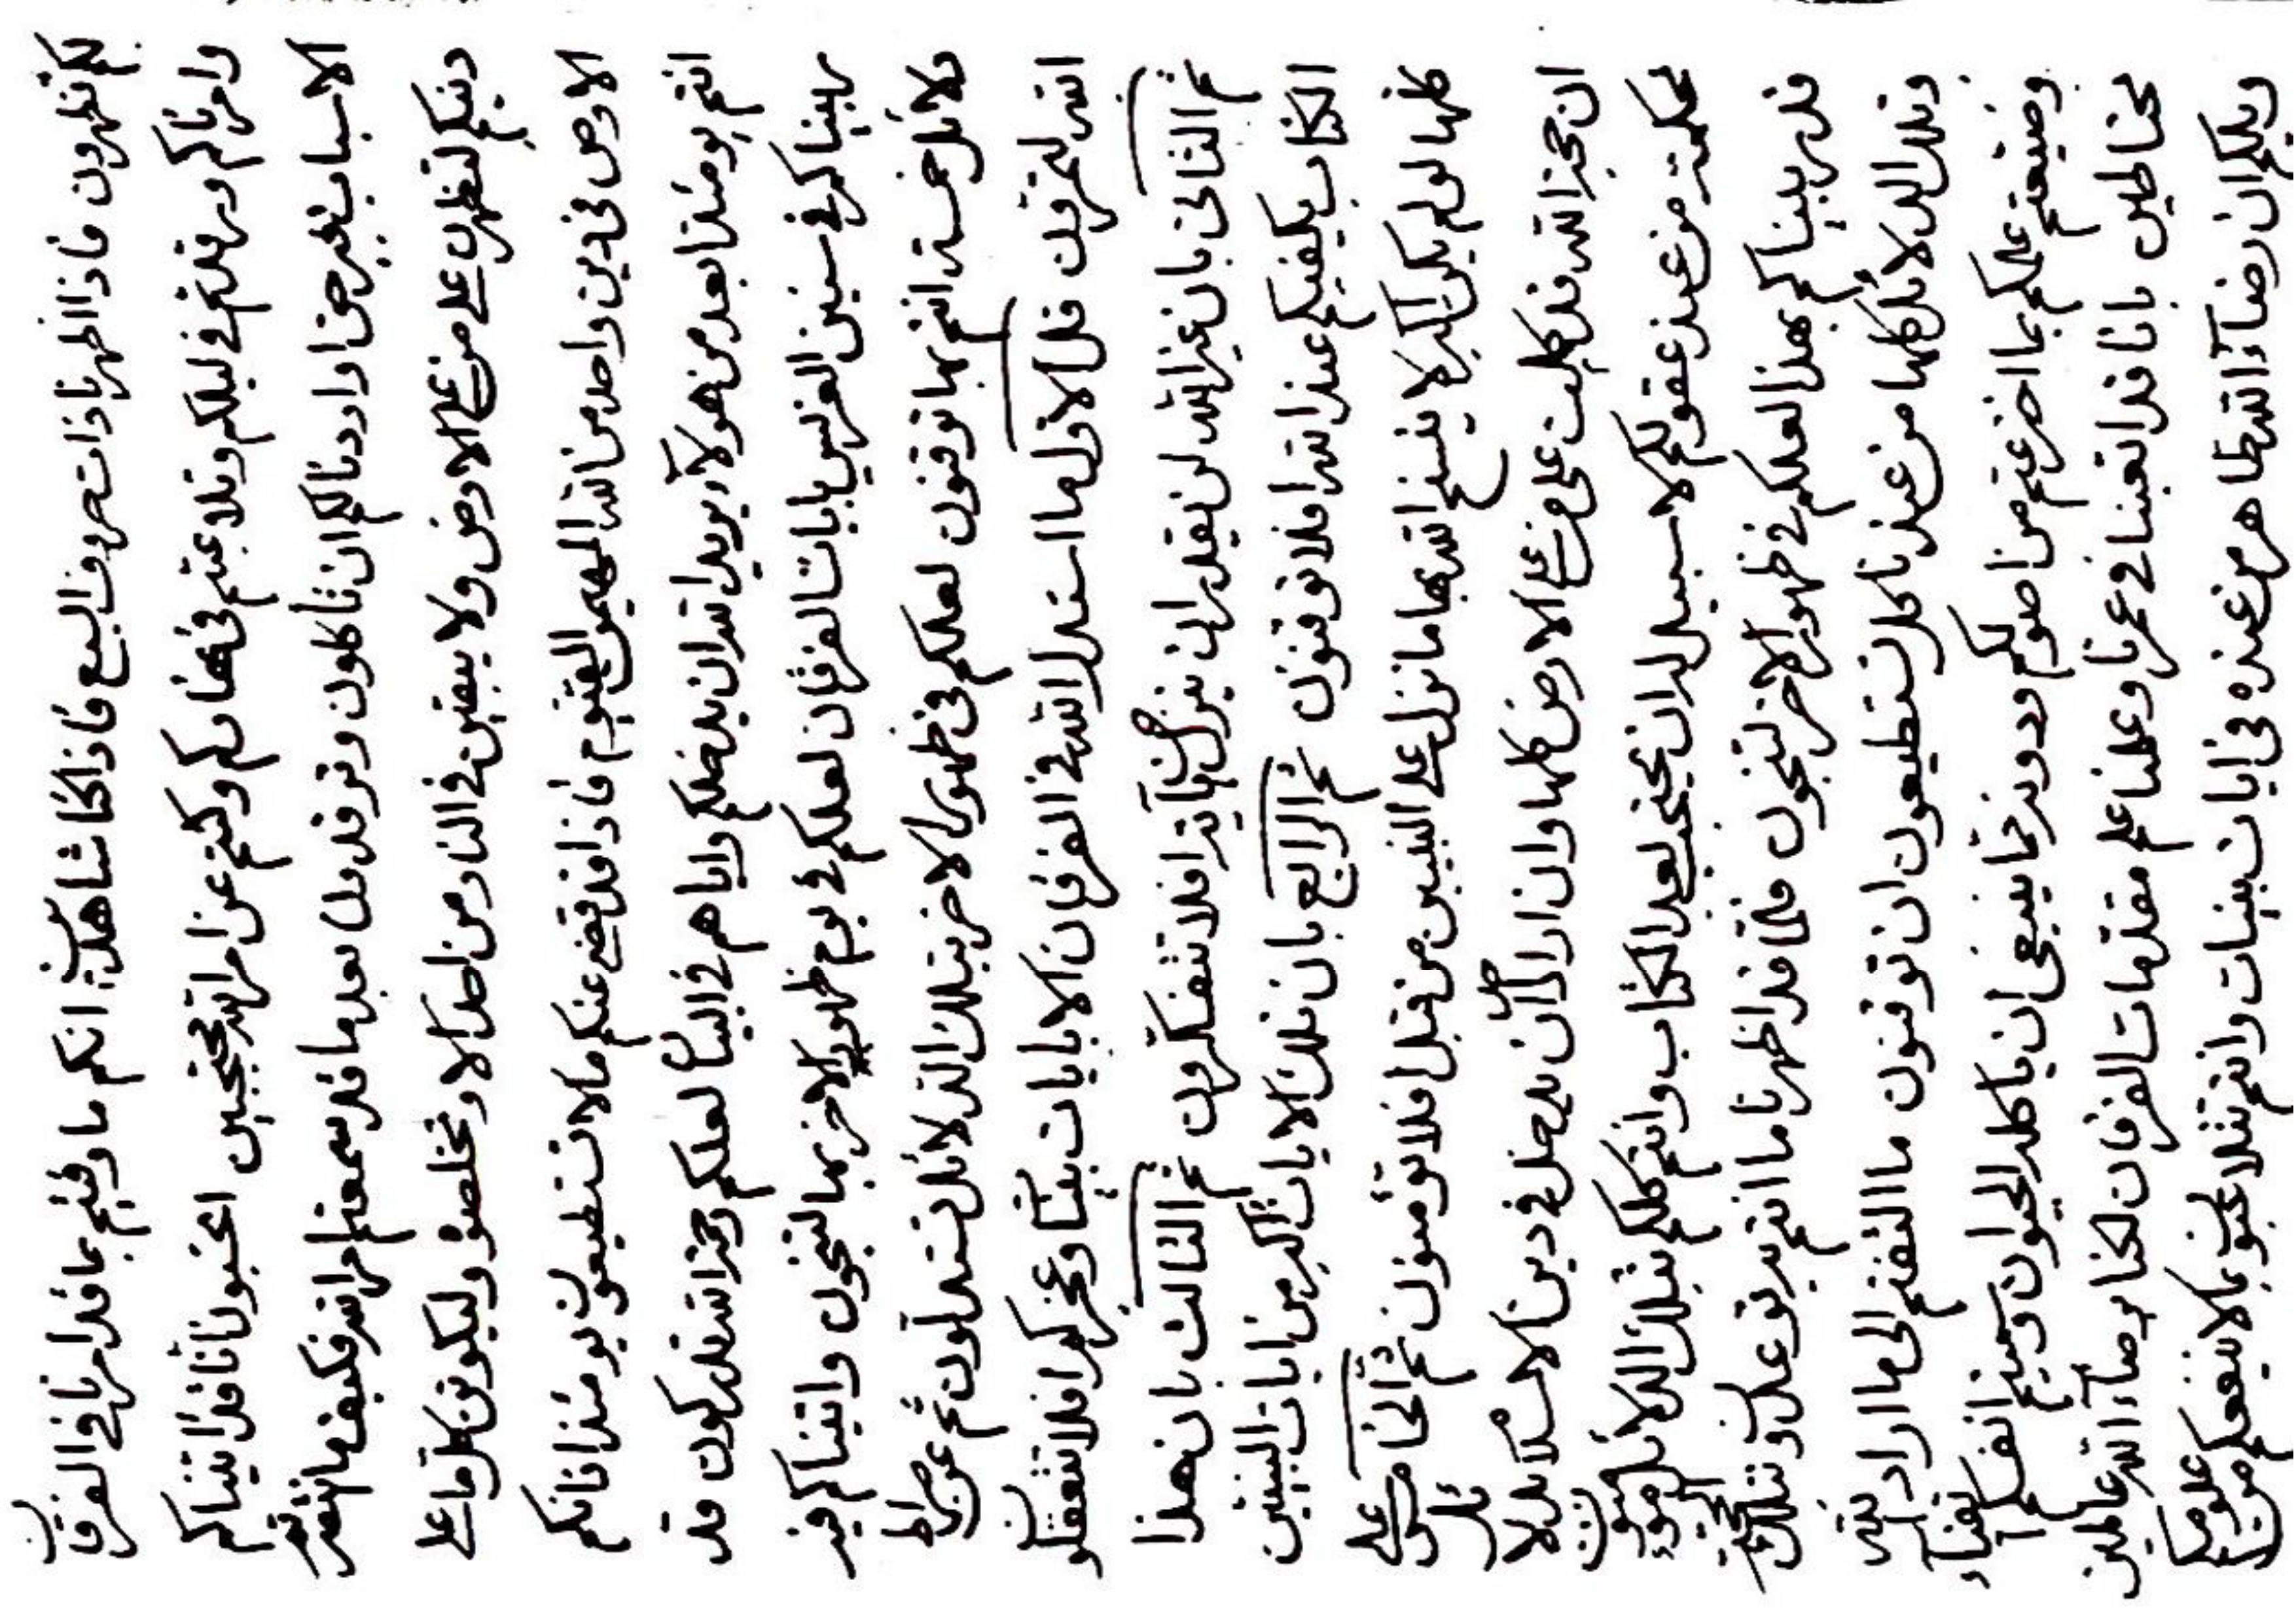 لكم تظهرون فاذا اظهرنا ذات حروف السبع فاذا كنا شاهدين انكم ما وفيتم بما قد امرنا في الفرقان
وامرناكم ورقدتم في ليلكم وتلاعبتم في نهاركم وكنتم عن امر الله محتجبين اتحسبون انا قد اتيناكم
الاسباب بغير حق او اردنا لكم ان تأكلون وترقدون بعد ما قد سمعتم امر الله فكيف ما انتم
دينكم لتظهرن على من على الارض ولا يبقين في النار من احد الا وتخلصون وليكونن كل ما على
الارض في دين واحد من الله المهيمن القيوم فاذا قد قضى عنكم ما لا تستطيعون يومئذ فانكم
انتم يومئذ ابعد من هولاء يريد الله ان يدخلكم واياهم في البيان لعلكم رحمة الله تدركون قد
ربيناكم في سنين الغرس بايات الفرقان لعلكم في يوم ظهور الاخر بها لتنجون واتيناكم فيه
دلائل خمسة انتم بها توقنون لعلكم في ظهور الاخر بتلك الدلائل تستدلون ثم عن صراط
الله لتمرقون قل الاول ما استدل الله في الفرقان الا بايات بينات وعجز كل افلا تتعقلون
ثم الثاني بان غير الله لن يقدر ان ينزل من آية افلا تتفكرون ثم الثالث بان هذا
الكتاب يكفيكم عند الله افلا توقنون ثم الرابع بان تلك الايات اكبر من ايات النبيين
كلها لو لم يكن اكبر لا ينسخ الله بها ما نزل على النبيين من قبل افلا تؤمنون ثم الخامس على
ان حجة الله قد كملت على من على الارض كلها وان اراد ان يدخل في دين الاسلام بدلائل
محكمة من عند عقولكم لا سبيل له ان يحتج بعد الكتاب وانتم كلكم بتلك الدلائل موقنون
قد ربيناكم بهذا لعلكم في ظهور الاخر لتنجون فلما قد اظهرنا ما انتم به توعدون وتلك الحجة
وتلك الدلائل كلها من عندنا كل تستطيعون ان توقنون ما التفتم الى ما اراد الله
وضيعتم علمكم بما اخترعتم من اصولكم ودونه مما ينبغي ان ياكله الحيوان ونسيتم انفسكم
مخاطبين بانا قد اتعبنا في عمرنا وعلمنا علم مقدمات الفرقان لكنا برضاء الله عاملين
ويلكم ان رضاء الله ظاهر من عنده في ايات بينات وانتم تتلاعبون بما لا ينفعكم من علومكم